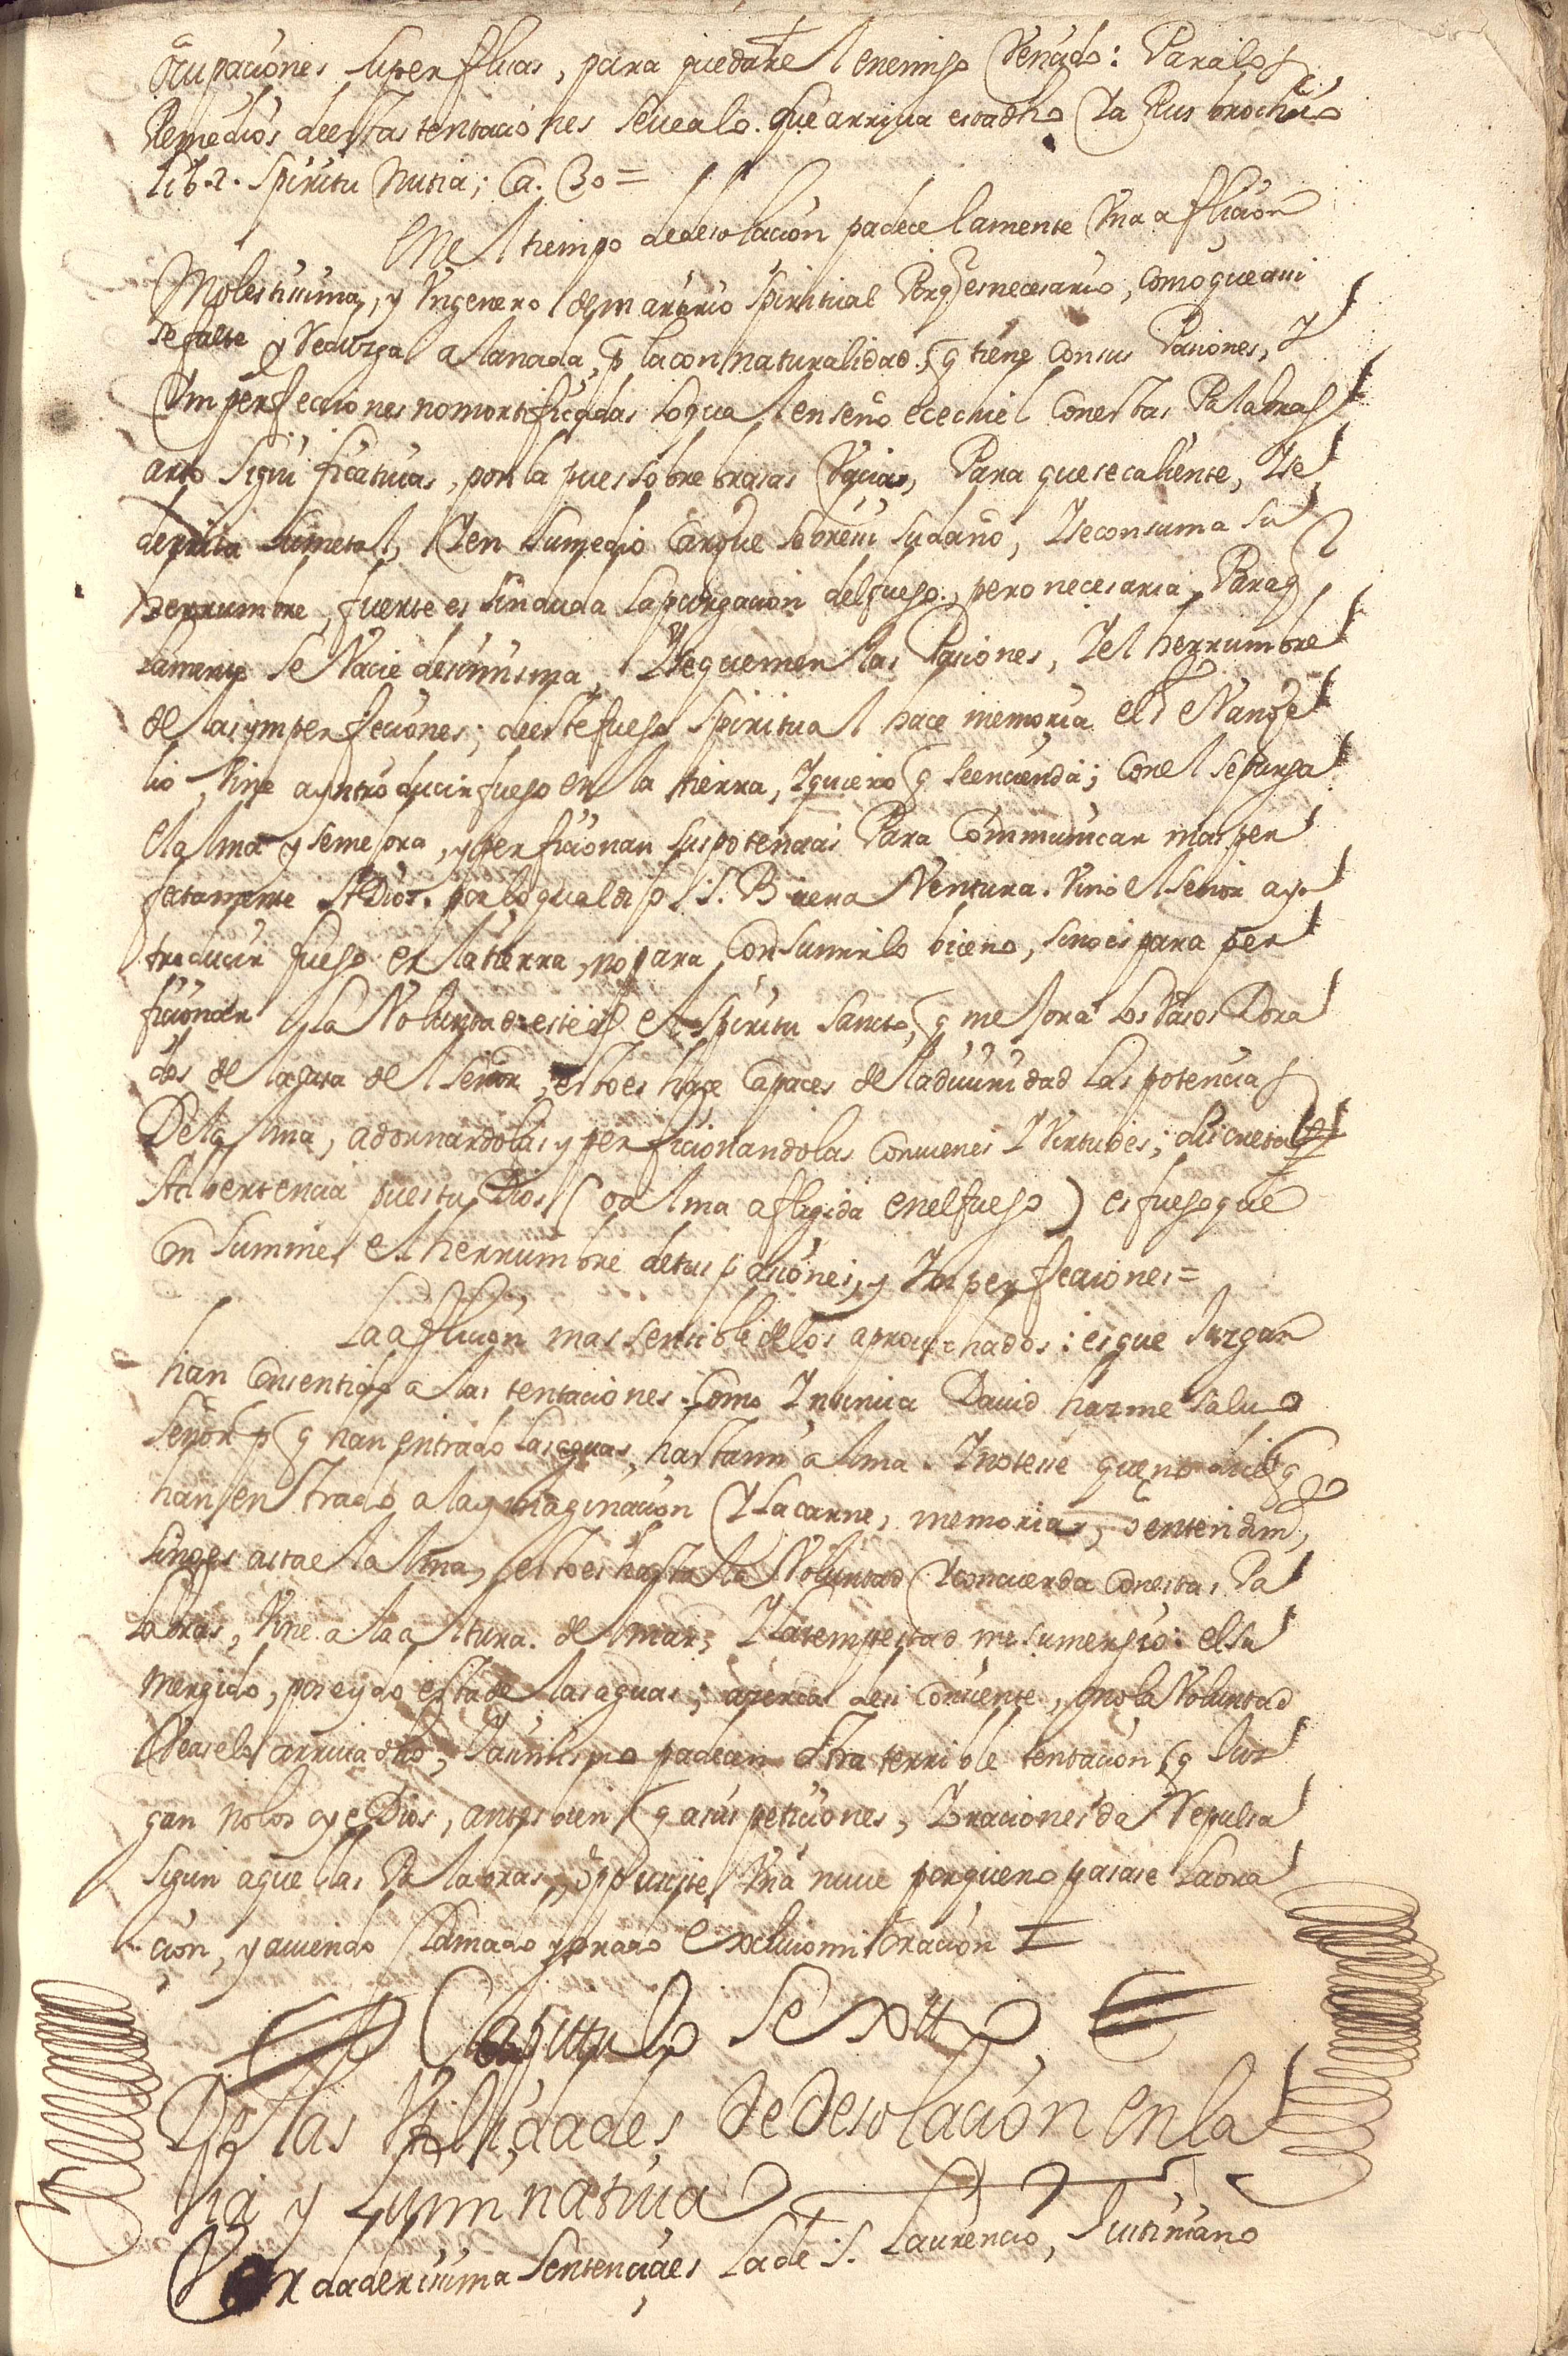 ocupaciones superfluas, para quedarse el enemigo Vencido: Para los
Remedios de estas tentaciones se vea lo que arriva esta dho Ya Rusbrochio
lib. 2. Spiritu Nutia; Ca. 30 =
En el tiempo de desolacion padece la mente Una afliçion
Molestissima, y Un genero de martirio Spiritual Porq es necesario, como que aui
se falte y Reduzga a la nada, p la connaturalidad, q tiene Con sus Pasiones, Y
Ymperfecciones no mortificadas lo qual enseño ecechiel Con estas Palabras
arto Significatiuas, pon la pues sobre brasas Vacias, Para que se caliente, Y se
derrita su metal, Y en su medio Cargue sobre si su daño, Y se consuma su
herrumbre, fuerte es sin duda la purgacion del fuego, pero necesaria, Para q
la mente Se Vacie de si misma, Y se quemen las Pasiones, Y el herrumbre
de las ymperfeciones; de este fuego Spiritual hace memoria el eVange
lio, Vine a yntroducir fuego en la tierra, Y quiero q se encienda; Con el se purga
el alma y se mejora, y perficionan sus potencias Para Communicar mas per
fetamente A Dios. por lo qual dijo S. Buena Ventura. Vino el señor a yn
troducir fuego en la tierra, no para Consumir lo bueno, sino es para per
ficionar la Voluntad este es el Spiritu Sancto, q mejora los Vasos Dora
dos de la casa del Señor, esto es hace Capaces de la diuinidad las potencias
Del alma, adornandolas y perficionandolas Con vienes Y Virtudes; discreta
Aduertencia pues tu Dios (o alma afligida en el fuego) es fuego que
Consumme el herrumbre de tus pasiones, y Ymperfeciones =
La afliçion mas sensible de los aprouechados: es que Juzgan
han Consentido a las tentaciones. Como Ynsinua Dauid hazme saluo
Señor p q han entrado las aguas, hasta mi alma. Y notese que no dice q
han entrado a la ymaginacion Y la carne, memoria, o entendim,
sino es asta el alma, esto es hasta la Voluntad Y concuerda Con estas Pa
labras, Vine a la altura del mar, Y la tempestad me sumergio: el su
mergido, poseydo esta de las aguas; acerca del Consiente, no la Voluntad
Veaselo arriua dho, Y asimismo padecen otra terrible tentacion q Juz
gan no los oye Dios, antes bien q a sus peticiones, Y oraciones da Repulsa
Segun aquellas Palabras, oppusiste Una nuue porque no pasase la ora
cion, y auiendo Llamado y orado excluio mi oracion =
Capitulo Sexto
De las Vtilidades de desolacion en la
Via y Luminatiua
Verdaderisima Sentencia es la de S. Laurencio, Justiniano